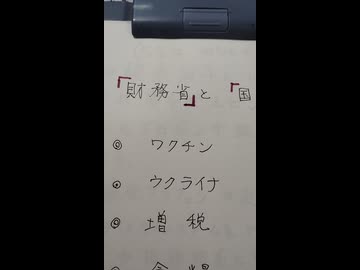 「財務省」と「国
◎ ワクチン
◎ ウクライナ
◎ 増税